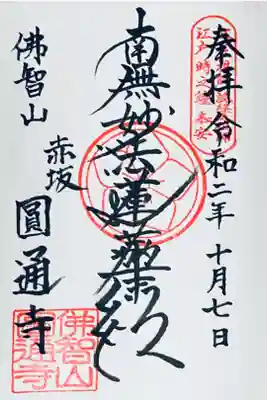 奉拝 令和二年 十月七日
南無妙法蓮華経
赤坂
圓通寺
佛智山
江戸時之鐘
佛智山
圓通寺